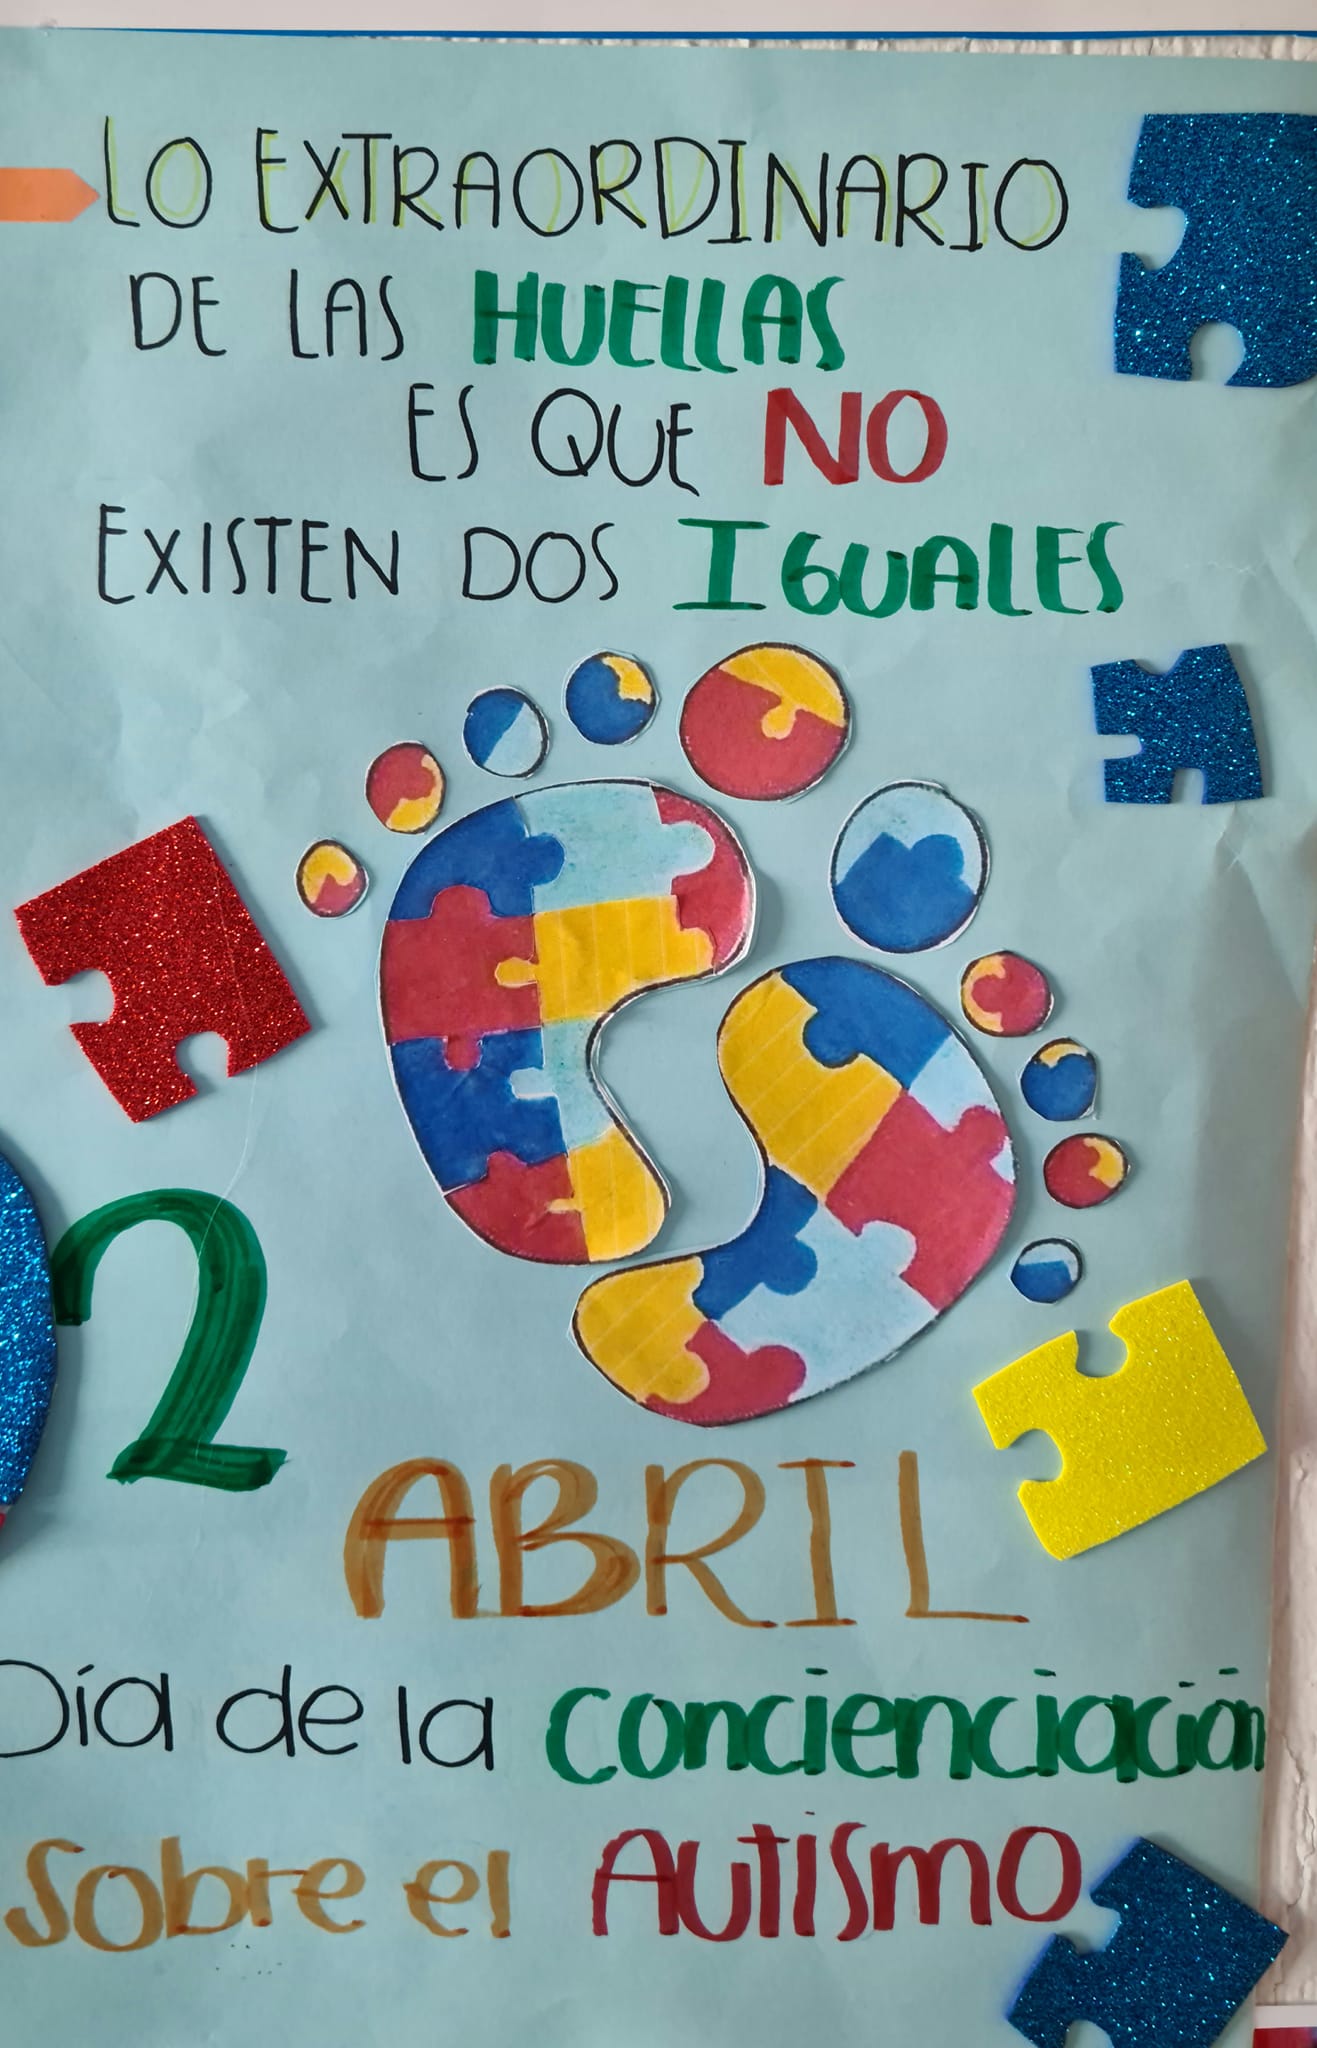 LO EXTRAORDINARIO
DE LAS HUELLAS
ES QUE NO
EXISTEN DOS IGUALES
2
ABRIL
Día de la concienciación
sobre el AUTISMO